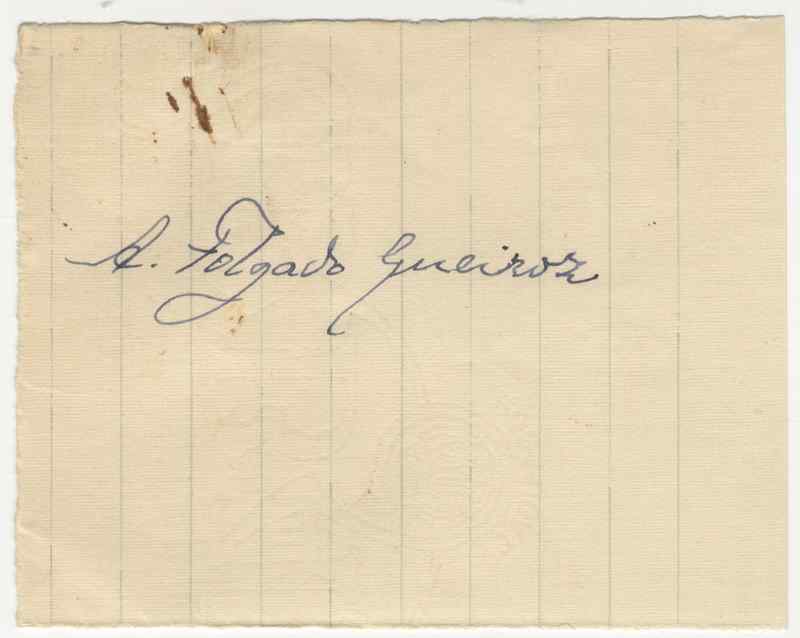 A. Folgado Queiroz